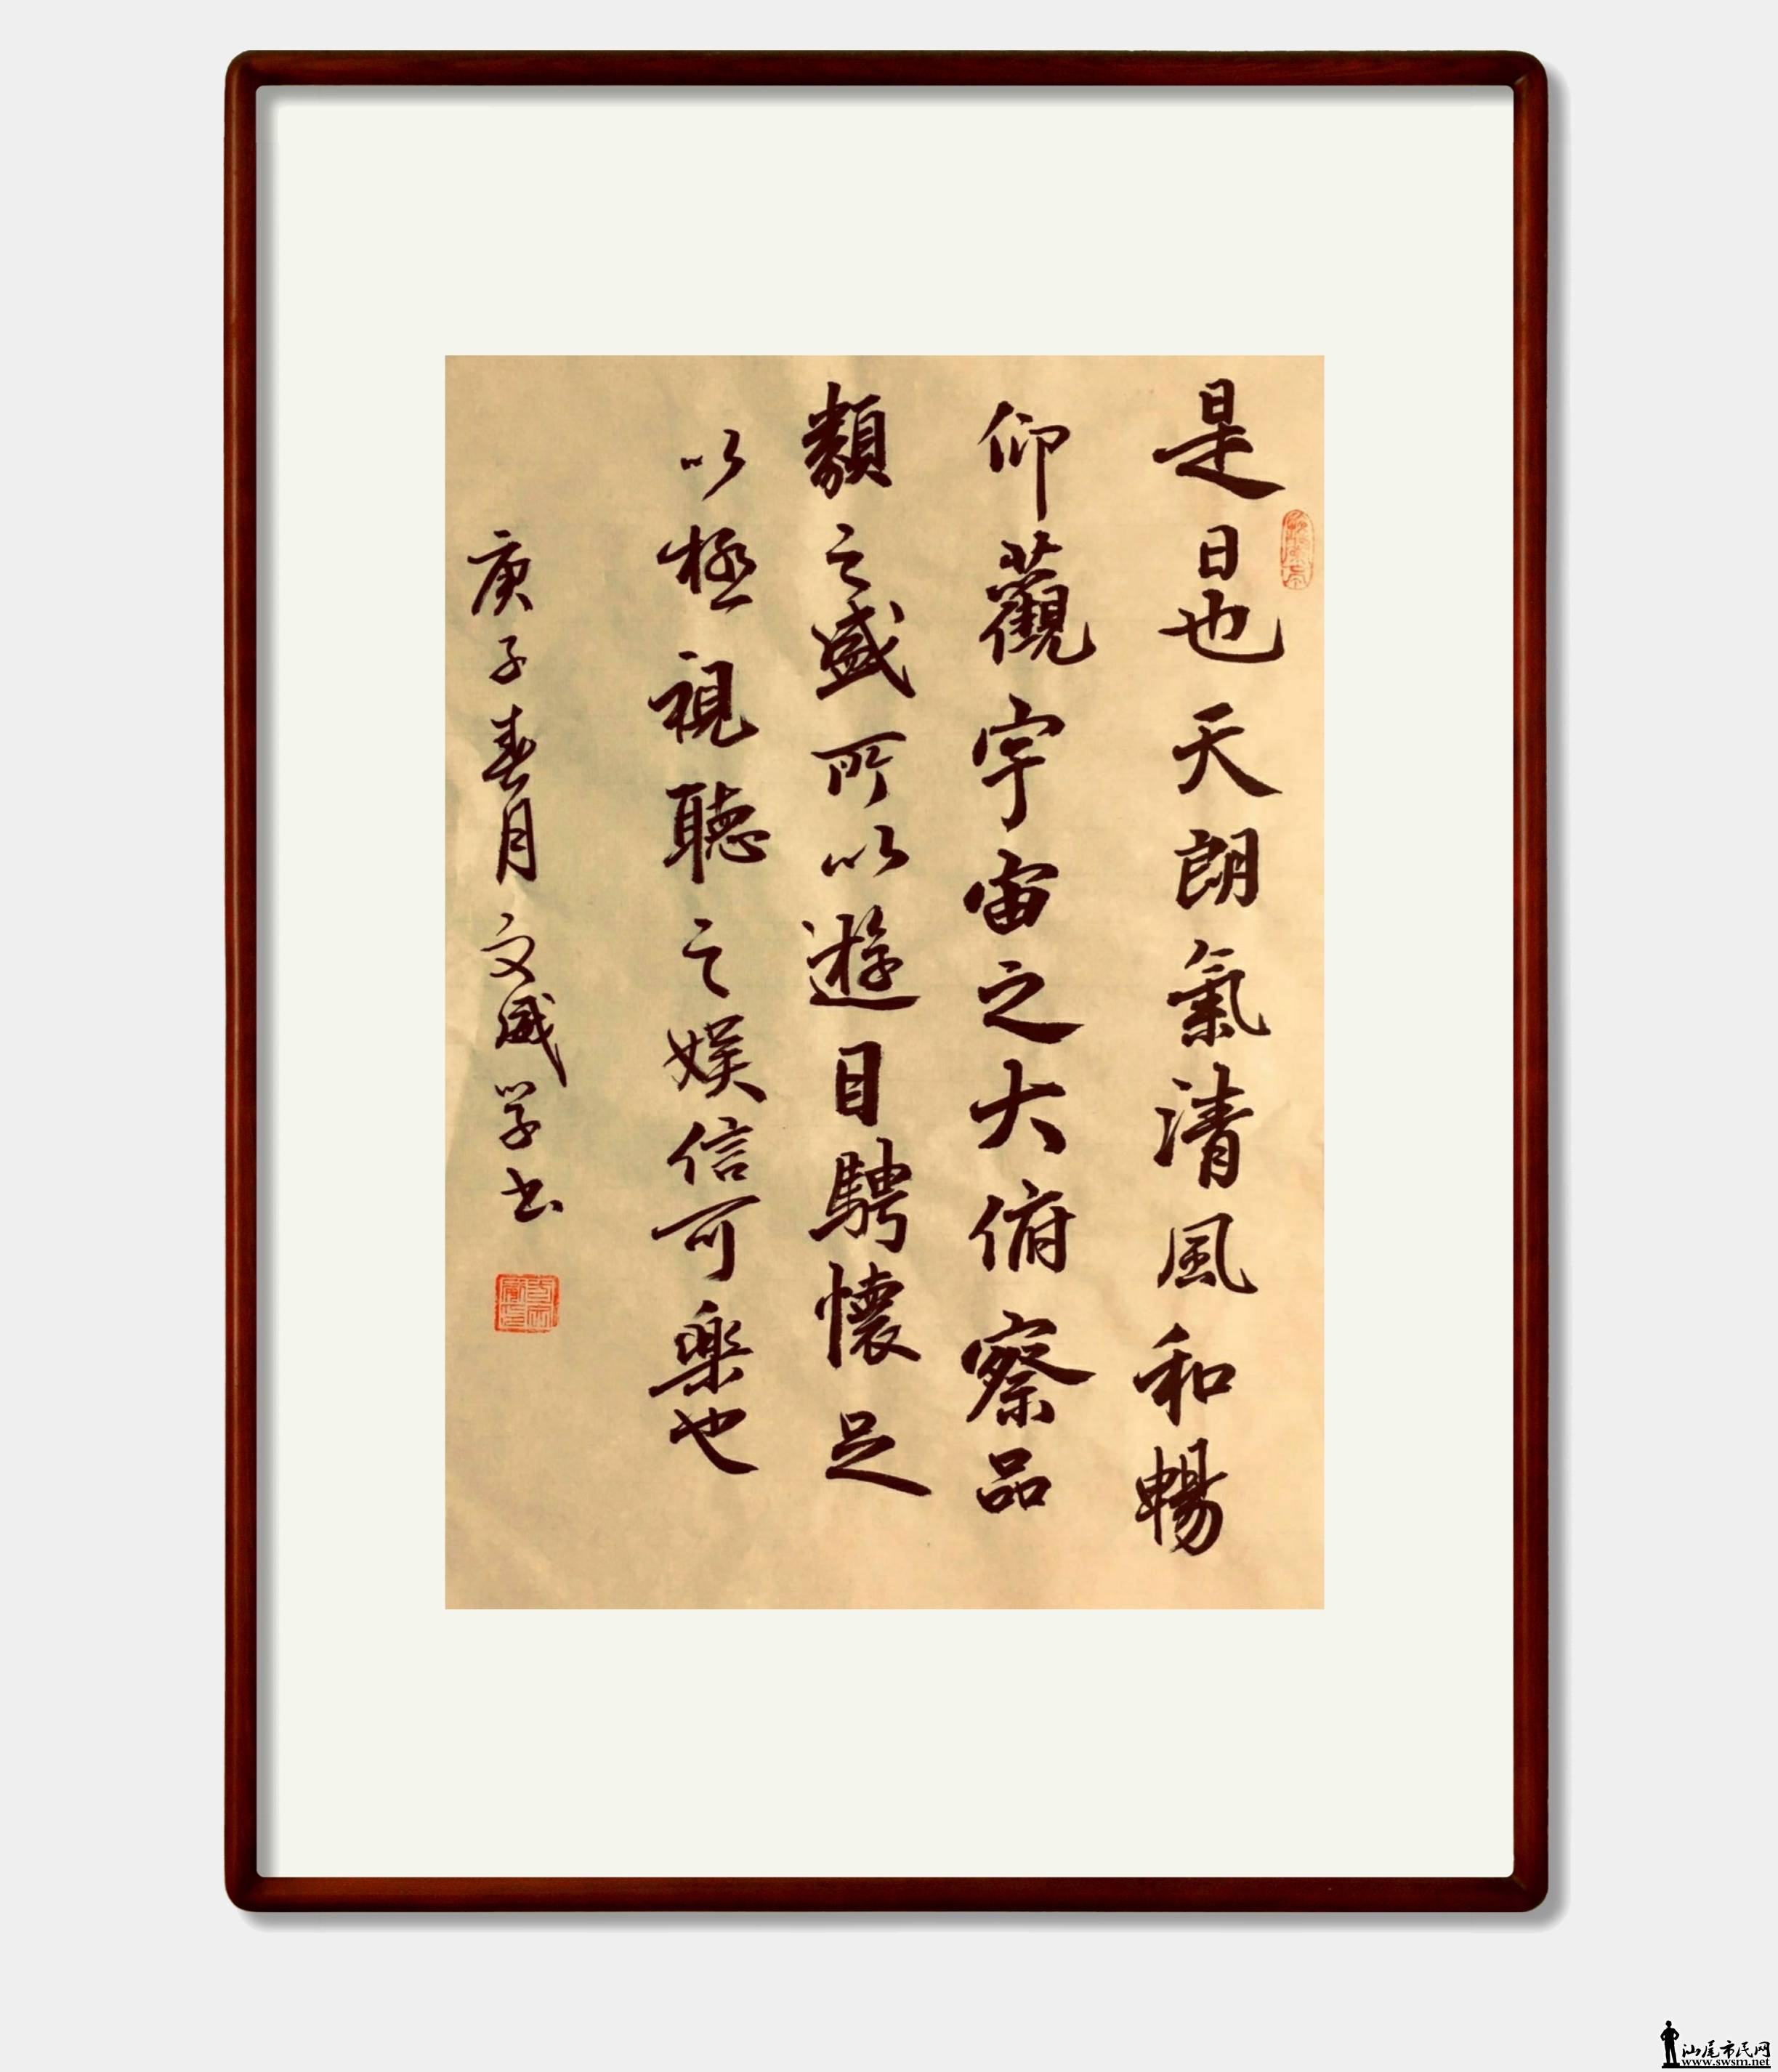 是日也天朗氣清風和暢
仰觀宇宙之大俯察品
類之盛所以遊目騁懷足
以極視聽之娱信可樂也
庚子春月文威学书
汕尾市民网
www.swsm.net